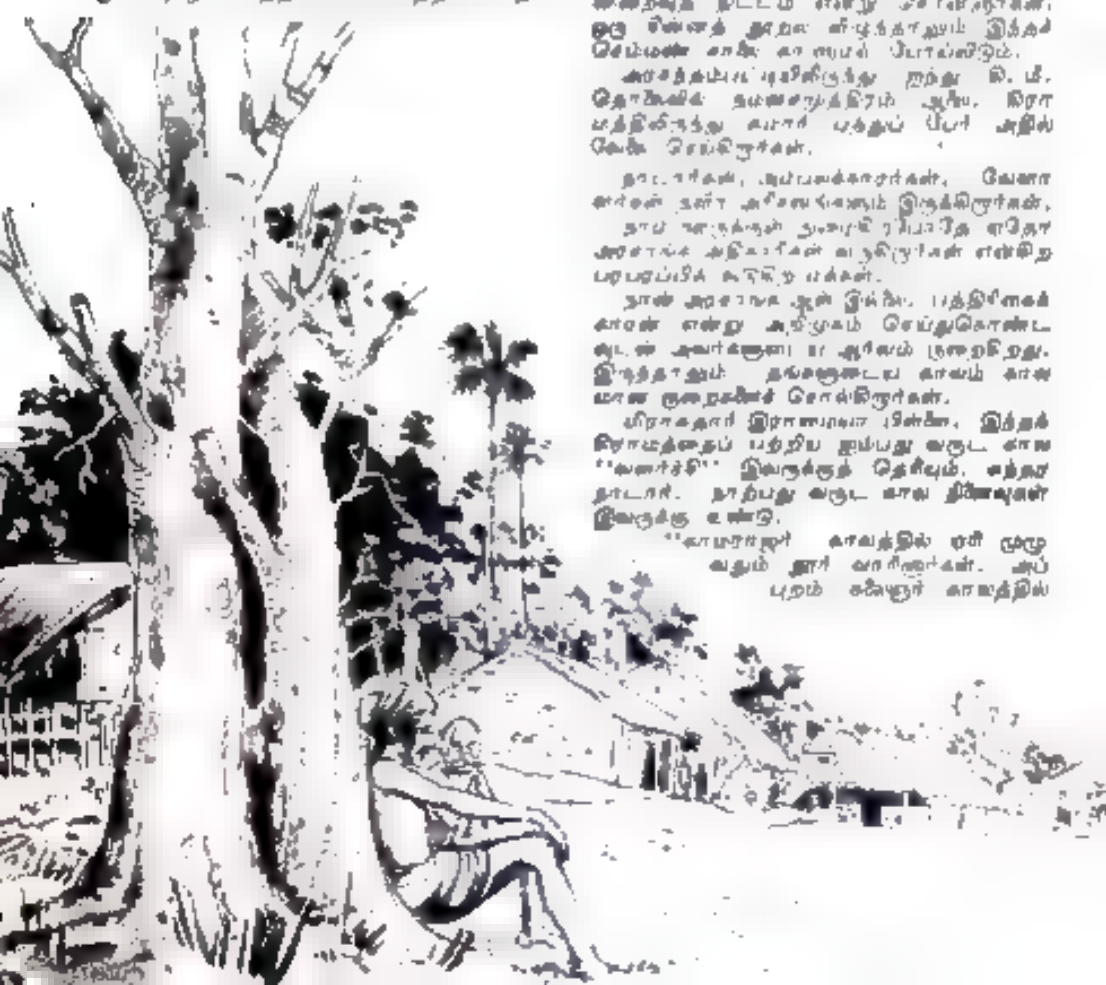 ஒரு சின்னத் தூறல் விழுந்தாலும் இந்தச்
செம்மண் சாலை காணாமல் போய்விடும்.
இருந்து ஐந்து கி. மீ.
தொலைவில்
சுமார் பத்துப் பேர் அதில்
வேலை செய்கிறார்கள்.
நாடார்கள், அம்பலக்காரர்கள், வேளா
ளர்கள் தவிர அரிசனங்களும் இருக்கிறார்கள்.
நாம் ஊருக்குள் நுழைகிறபோதே ஏதோ
அரசாங்க அதிகாரிகள் வருகிறார்கள் என்கிற
பரபரப்பில் கூடுகிற மக்கள்.
நான் அரசாங்க ஆள் இல்லை. பத்திரிகைக்
காரன் என்று அறிமுகம் செய்துகொண்ட
வுடன் அவர்களுடைய ஆர்வம் குறைகிறது.
இருந்தாலும் தங்களுடைய காலம் கால
மான குறைகளைச் சொல்கிறார்கள்.
மிராசுதார் இராமையா பிள்ளை. இந்தக்
கிராமத்தைப் பற்றிய ஐம்பது வருட கால
"வளர்ச்சி" இவருக்குத் தெரியும்.
நாடார். நாற்பது வருட கால நினைவுகள்
இவருக்கு உண்டு.
"காமராஜர் காலத்தில் ஏரி முழு
வதும் தூர் வாரினார்கள். அப்
புறம் கலைஞர் காலத்தில்